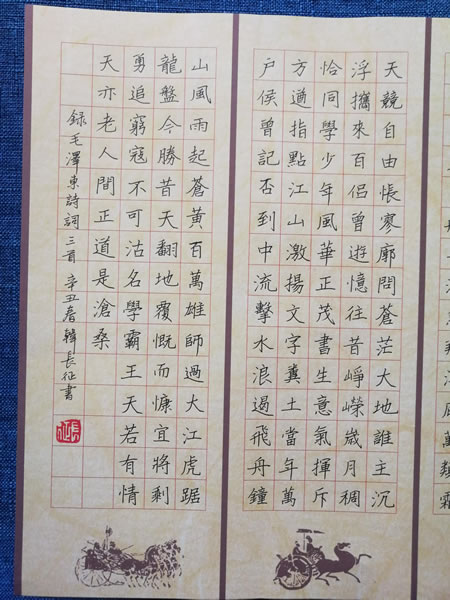 萬類霜
天競自由悵寥廓問蒼茫大地誰主沉
浮攜來百侣曾遊憶往昔崢嶸歲月稠
恰同學少年風華正茂書生意氣揮斥
方遒指點江山激揚文字糞土當年萬
户侯曾記否到中流擊水浪遏飛舟鐘
山風雨起蒼黃百萬雄師過大江虎踞
龍盤今勝昔天翻地覆慨而慷宜將剩
勇追窮寇不可沽名學霸王天若有情
天亦老人間正道是滄桑
録毛澤東詩詞三首 辛丑春韓長征書